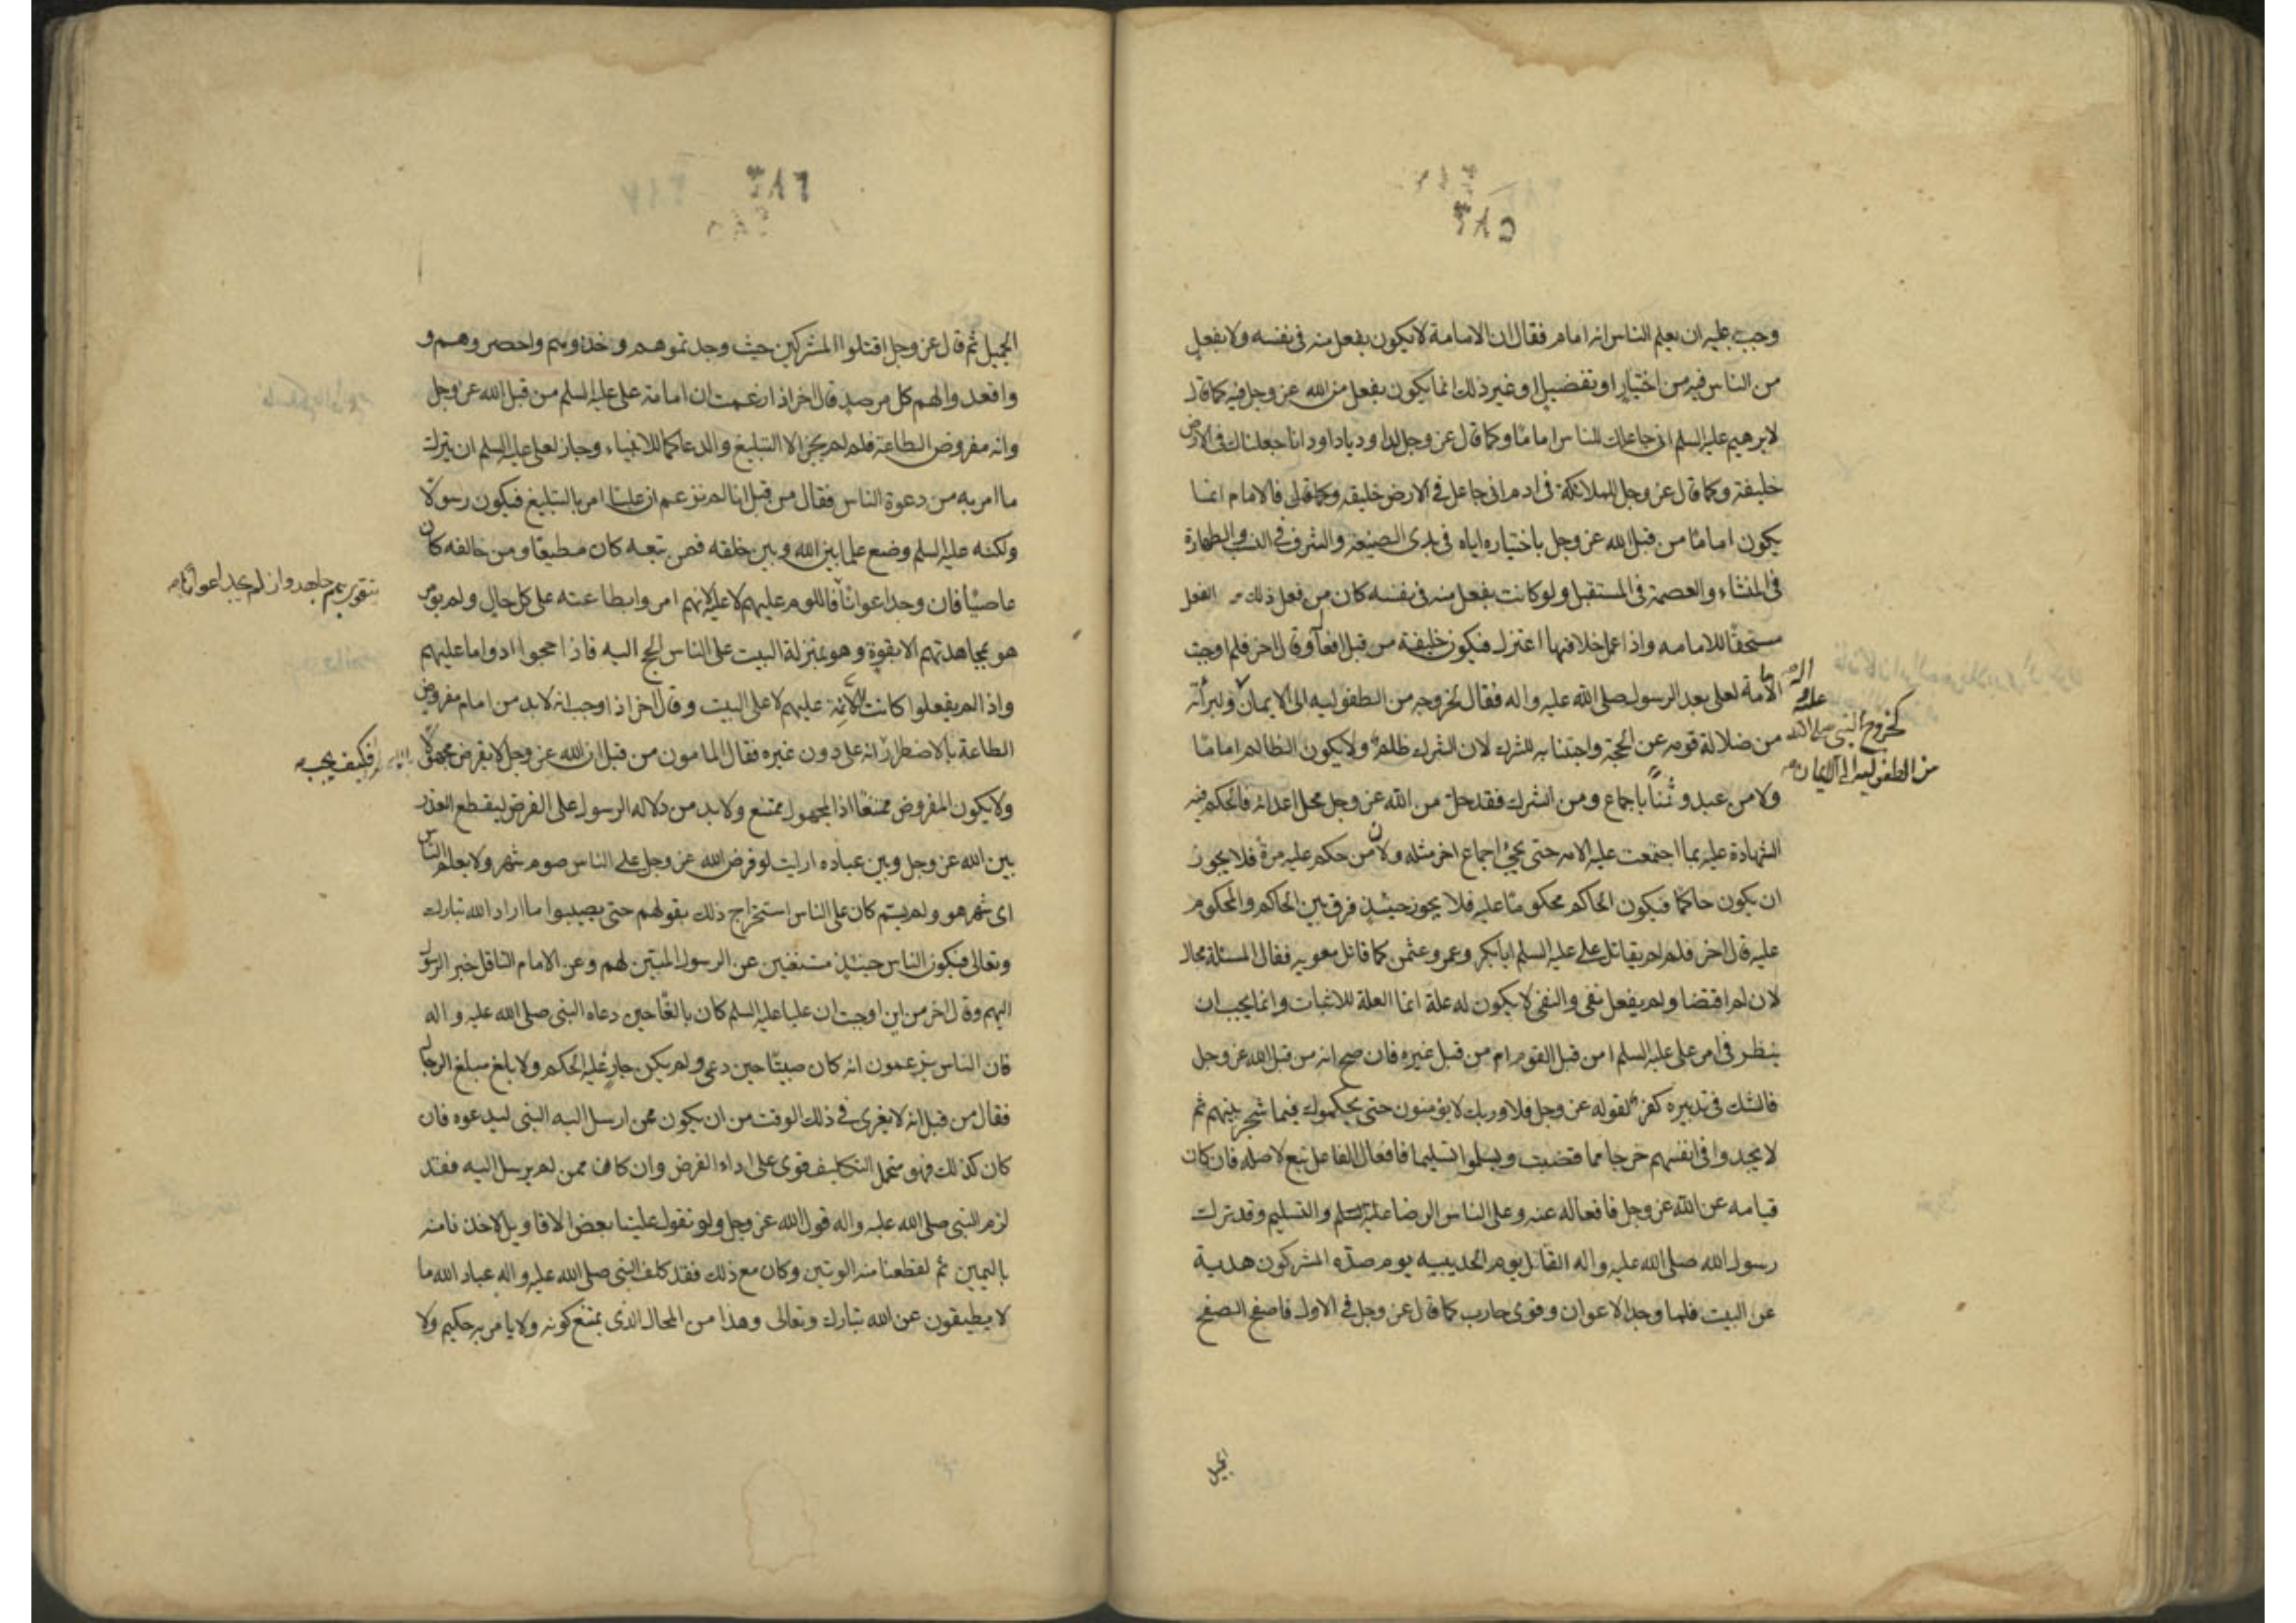 وجب عليه ان يعلم الناس انه امام فقال ان الامامة لا يكون بفعل منه فى نفسه ولا بفعل
من الناس فيه من اختيار او تفضيل او غير ذلك انما يكون بفعل من الله عز وجل فيه كما قال
لابرهيم عليه السلم انى جاعلك للناس اماما وكما قال عز وجل لداود يا داود انا جعلناك فى الارض
خليفة وكما قال عز وجل للملائكة فى ادم انى جاعل فى الارض خليفه فالامام انما
يكون اماما من قبل الله عز وجل باختياره اياه فى بدى الصنيعة والشرف فى النسب والطهارة
فى المنشاء والعصمة فى المستقبل ولو كانت بفعل منه فى نفسه كان من فعل ذلك الفعل
مستحقا للامامه واذا عمل خلافها اعتزل فيكون خليفة من قبل افعاله وقال اخر فلم اوجبت
الامامة لعلى بعد الرسول صلى الله عليه واله فقال لخروجه من الطفوليه الى الايمان ولبرائه
كخروج النبى صلى الله عليه واله
من الطفوليه الى الايمان
من ضلالة قومه عن الحجة واجتنابه للشرك لان الشرك ظلم ولا يكون الظالم اماما
ولا من عبد وثنا باجماع ومن اشرك فقد حل من الله عز وجل محل اعدائه فالحكم فيه
الشهادة عليه بما اجتمعت عليه الامه حتى يجئ اجماع اخر مثله ولان من حكم عليه مرة فلا يجوز
ان يكون حاكما فيكون الحاكم محكوما عليه فلا يجوز حينئذ فرق بين الحاكم والمحكوم
عليه قال اخر فلم لم يقاتل على عليه السلم ابا بكر وعمر وعثمن كما قاتل معويه فقال المسئلة محال
لان لم اقتضا ولم يفعل نفى والنفى لا يكون له علة انما العلة للاثبات وانما يجب ان
ينظر فى امر على عليه السلم امن قبل القوم ام من قبل غيره فان صح انه من قبل الله عز وجل
فالشك فى تدبيره كفر لقوله عز وجل فلا وربك لا يؤمنون حتى يحكموك فيما شجر بينهم ثم
لا يجدوا فى انفسهم حرجا مما قضيت ويسلموا تسليما فافعال الفاعل تبع لاصله فان كان
قيامه عن الله عز وجل فافعاله عنه وعلى الناس الرضا والتسليم وقد ترك
رسول الله صلى الله عليه واله القتال يوم الحديبيه يوم صده المشركون هديه
عن البيت فلما وجد الاعوان وقوى حارب كما قال عز وجل فى الاول فاصفح الصفح
الجميل
الجميل ثم قال عز وجل اقتلوا المشركين حيث وجدتموهم وخذوهم واحصروهم و
واقعدوا لهم كل مرصد قال اخر اذا زعمت ان امامة على عليه السلم من قبل الله عز وجل
وانه مفروض الطاعة فلم لم يجز الا التبليغ والدعا كما للانبياء وجاز لعلى عليه السلم ان يترك
ما امر به من دعوة الناس فقال من قبل انا لم نزعم ان عليا امر بالتبليغ فيكون رسولا
ولكنه عليه السلم وضع علما بين الله وبين خلقه فمن تبعه كان مطيعا ومن خالفه كان
عاصيا فان وجد اعوانا فاللوم عليهم لا عليه لانهم امروا بطاعته على كل حال ولم يؤمر
هو بمجاهدتهم الا بقوة وهو بمنزلة البيت على الناس الحج اليه فاذا حجوا ادوا ما عليهم
واذا لم يفعلوا كانت اللائمة عليهم لا على البيت وقال اخر اذا اوجب انه لا بد من امام مفروض
الطاعة بالاضطرار انه على دون غيره فقال المامون من قبل ان الله عز وجل لا يفرض مجهولا
فكيف يجب
ولا يكون المفروض ممتنعا اذ المجهول ممتنع ولا بد من دلاله الرسول على الفرض ليقطع العذر
بين الله عز وجل وبين عباده ارايت لو فرض الله عز وجل على الناس صوم شهر ولا يعلم الناس
اى شهر هو ولم يسم كان على الناس استخراج ذلك بقولهم حتى يصيبوا ما اراد الله تبارك
وتعالى فيكون الناس حينئذ مستغنين عن الرسول المبين لهم وعن الامام الناقل خبر الرسول
اليهم وقال اخر من اين اوجبت ان عليا عليه السلم كان بالغا حين دعاه النبى صلى الله عليه واله
فان الناس يزعمون انه كان صبيا حين دعى ولم يكن جاز عليه الحكم ولا بلغ مبلغ الرجال
فقال من قبل انه لا يعرى فى ذلك الوقت من ان يكون ممن ارسل اليه النبى ليدعوه فان
كان كذلك فهو محتمل التكليف قوى على اداء الفرض وان كان ممن لم يرسل اليه فقد
لزم النبى صلى الله عليه واله قول الله عز وجل ولو تقول علينا بعض الاقاويل لاخذنا منه
باليمين ثم لقطعنا منه الوتين وكان مع ذلك فقد كلف النبى صلى الله عليه واله عباد الله ما
لا يطيقون عن الله تبارك وتعالى وهذا من المحال الذى يمتنع كونه ولا يامر به حكيم ولا